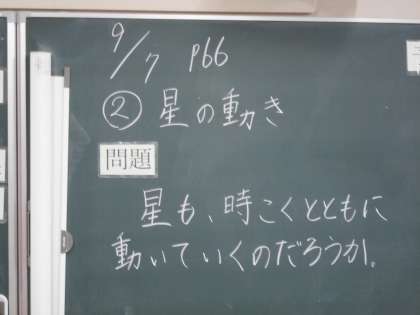 9/7 P66
② 星の動き
問題
星も、時こくとともに
動いていくのだろうか。